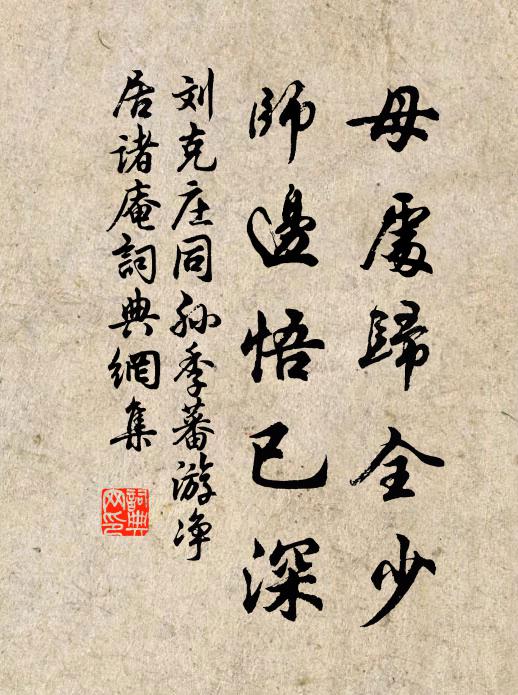 母處歸全少
師邊悟已深
刘克庄同孙季蕃游净
居诸庵詞典網集
詞典网印